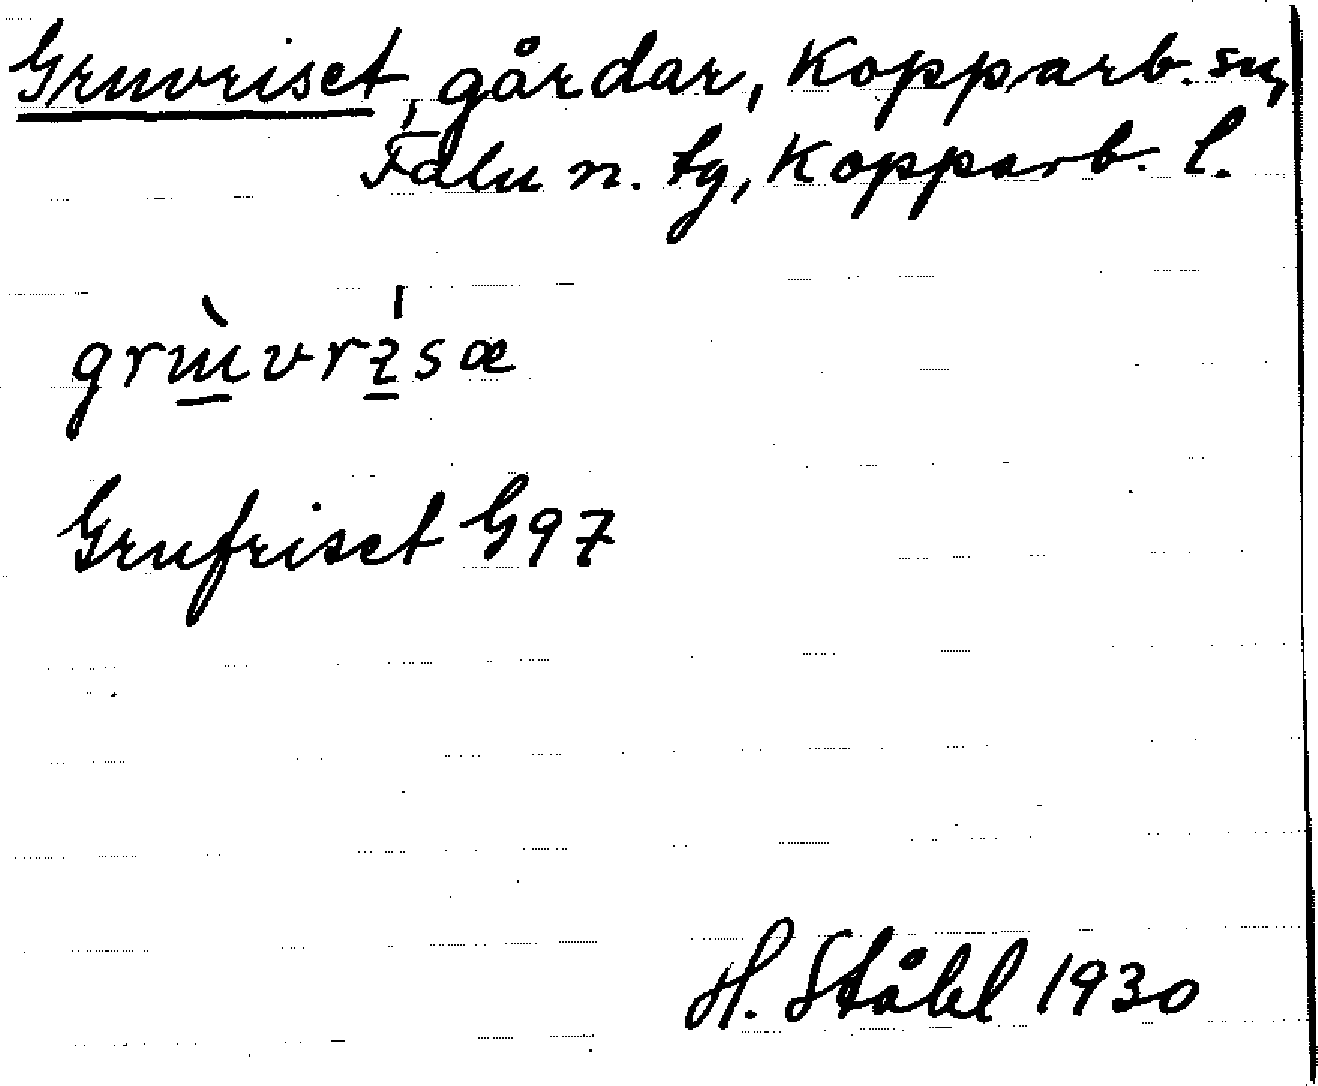 Gruvriset, gårdar, Kopparb. sn,
Falu n. tg, Kopparb. l.
grùvrı̍sæ
Grufriset G97
H. Ståhl 1930